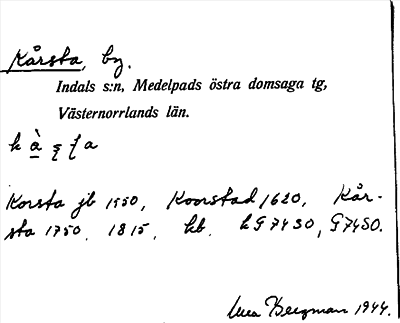 Kårsta, by.
Indals s:n, Medelpads östra domsaga tg,
Västernorrlands län.
Korsta jb 1550, Koorstad 1620, Kår-
sta 1750, 1815, hb. hG7430, G7450.
Bergman 1944.